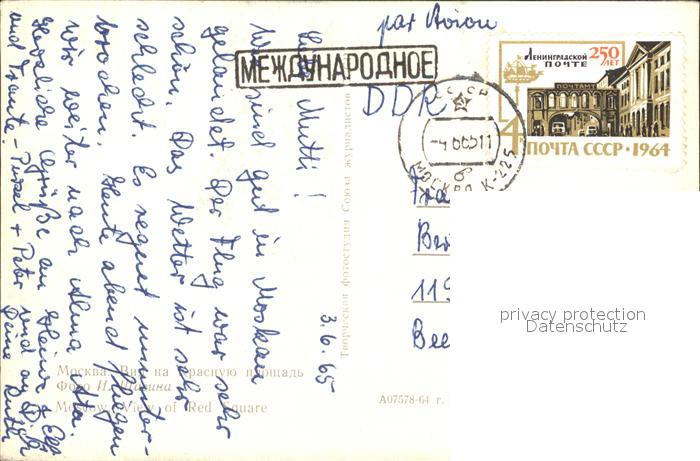 par Avion
МЕЖДУНАРОДНОЕ
ЛЕНИНГРАДСКОЙ
ПОЧТЕ
250
ЛЕТ
ПОЧТАМТ
4
ПОЧТА СССР · 1964
СССР
МОСКВА К-225
DDR
Ber
119
Bee
privacy protection
Datenschutz
3.6.65
Liebe Mutti!
Wir sind gut in Moskau
gelandet. Der Flug war sehr
schön. Das Wetter ist sehr
schlecht. Es regnet ununter-
brochen. Heute abend fliegen
wir weiter nach Alma Ata.
Herzliche Grüße an Heinz + Elli
und Tante
+ Peter und an Dich
Deine Ruth
Творческая фотостудия Союза журналистов
Москва. Вид на Красную площадь
Фото И. Шагина
Moscow. View of Red Square
А07578-64 г.